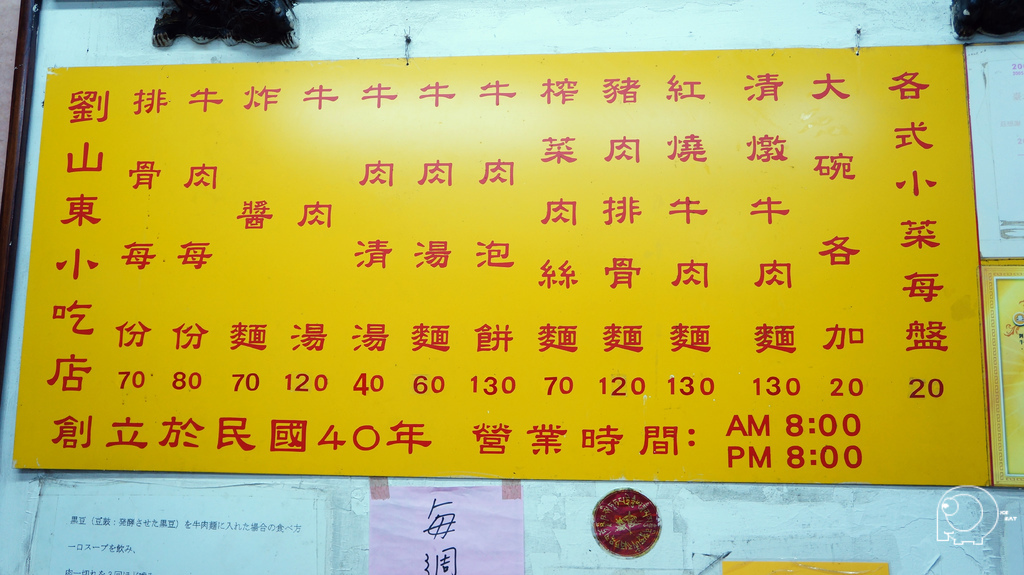 各式小菜每盤 20
大碗各加 20
清燉牛肉麵 130
紅燒牛肉麵 130
豬肉排骨麵 120
榨菜肉絲麵 70
牛肉泡餅 130
牛肉湯麵 60
牛肉清湯 40
牛肉湯 120
炸醬麵 70
牛肉每份 80
排骨每份 70
劉山東小吃店
創立於民國40年 營業時間: AM 8:00
PM 8:00
黒豆（豆鼓：発酵させた黒豆）を牛肉麺に入れた場合の食べ方
一口スープを飲み、
每週